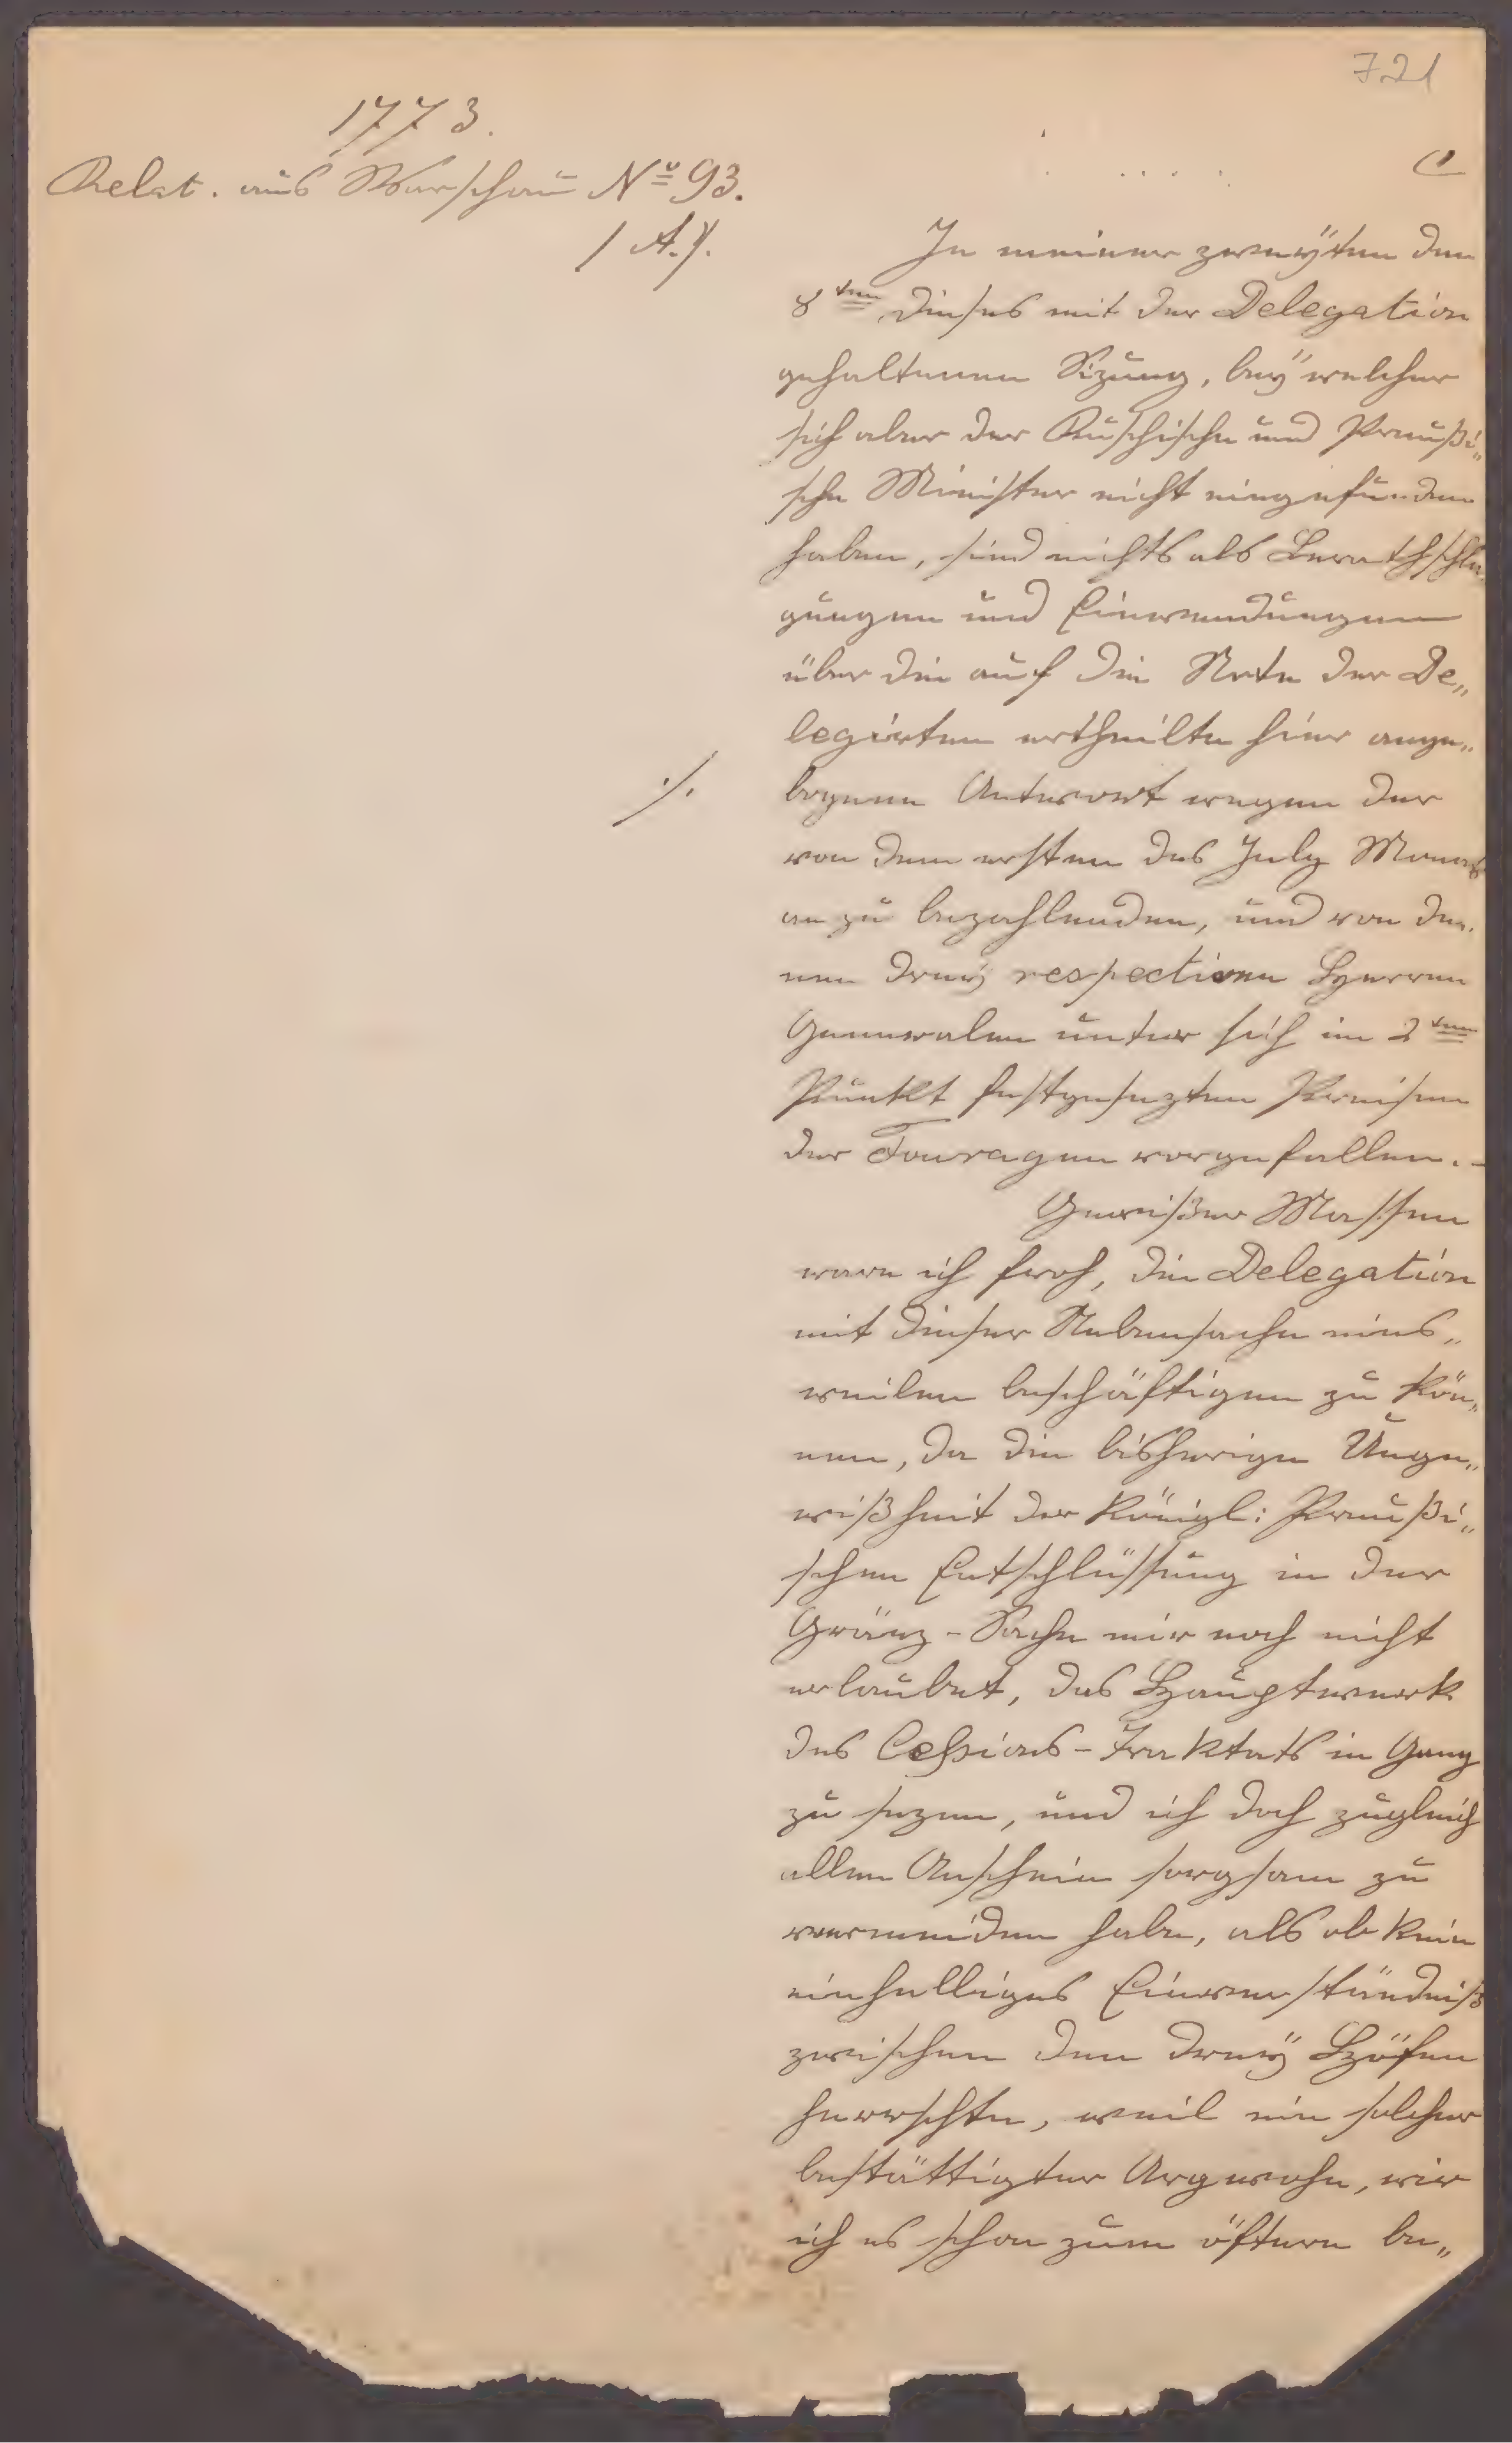 721
1773.
Relat. aus Warschau No 93.
/ A. /.
In meiner zweÿten den
8ten dieses mit der Delegation
gehaltenen Sizung, beÿ welcher
sich aber der Rußische und Preußi„
sche Minister nicht eingefunden
haben, sind nichts als Berathschla
gungen und Einwendungen
über die auf die Note der De„
legirten ertheilte hier ange„
bogene Antwort wegen der
./.
von dem ersten des July Monats
an zu bezahlenden, und von de„
nen dreÿ respectiven Herren
Generalen unter sich im 2ten
Punkt festgesezten Preisen
der Fouragen vorgefallen. -
Gewißer Massen
ware ich froh, die Delegation
mit dieser Nebensache eins„
weilen beschäftigen zu kön„
nen, da die bisherige Unge„
wißheit der königl: Preußi„
schen Entschlüssung in der
Gränz-Sache mir noch nicht
erlaubet, das Hauptwerk
des Cessions-Traktats in Gang
zu sezen, und ich doch zugleich
allen Anschein sorgsam zu
vermeiden habe, als ob kein
einhelliges Einverständniß
zwischen den dreÿ Höfen
herrschte, weil ein solcher
bestättigter Argwohn, wie
ich es schon zum öftern be„